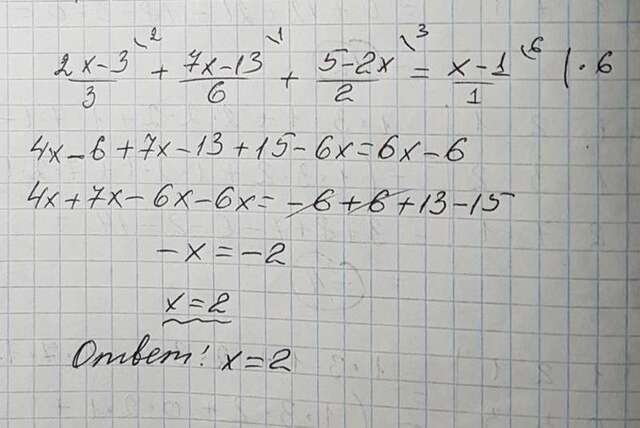 (2x-3)/3 \2 + (7x-13)/6 \1 + (5-2x)/2 \3 = (x-1)/1 \6 | · 6
4x-6+7x-13+15-6x=6x-6
4x+7x-6x-6x=-6+6+13-15
-x=-2
x=2
Ответ: x=2